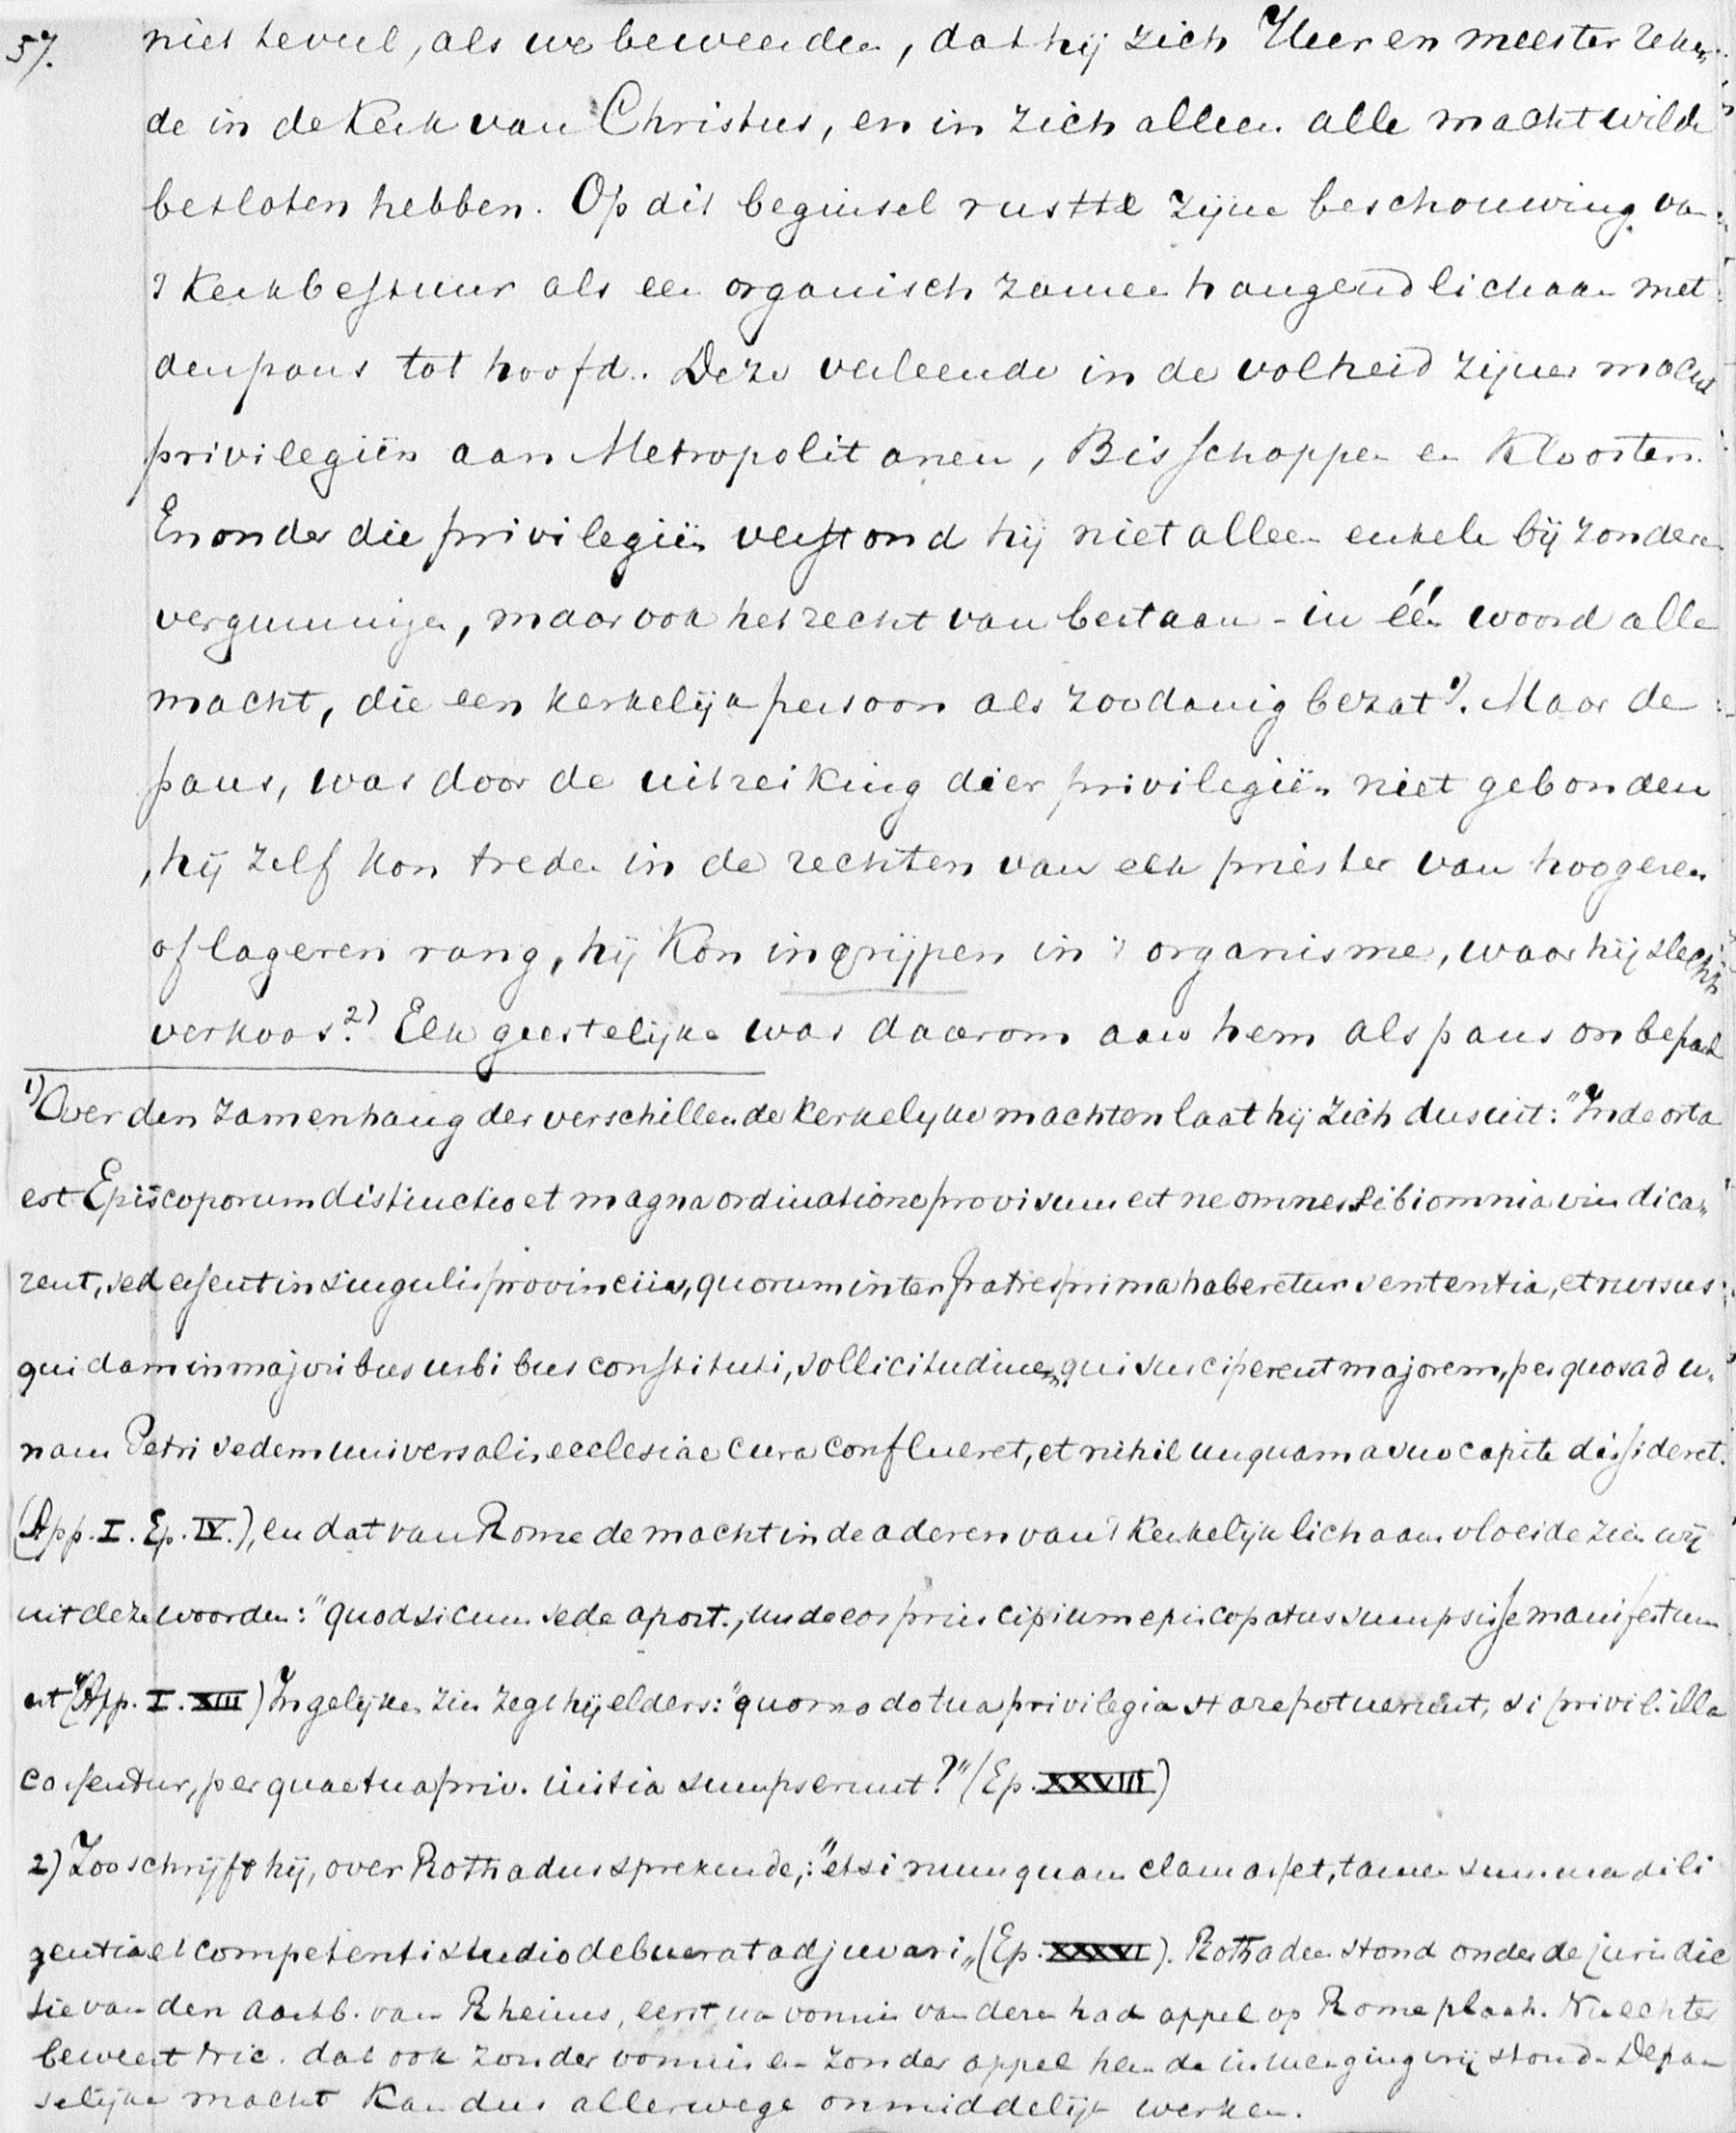 57. niet teveel, als we beweerden, dat hij zich Heer en meester reken„
de in de Kerk van Christus, en in zich alleen alle macht wilde
besloten hebben. Op dit beginsel rustte zijne beschouwing van
't Kerkbestuur als een organisch zamenhangend lichaam met
den paus tot hoofd. Deze verleende in de volheid zijner macht
privilegiën aan Metropolitanen, Bisschoppen en Kloosters.
En onder die privilegiën verstond hij niet alleen enkele bijzondere
vergunningen, maar ook het recht van bestaan - in één woord alle
macht, die een kerkelijk persoon als zoodanig bezat 1). Maar de
paus, was door de uitreiking dier privilegiën niet gebonden
, hij zelf kon treden in de rechten van elk priester van hoogeren
of lageren rang, hij kon ingrijpen in 't organisme, waar hij slechts
verkoos. 2) Elk geestelijke was daarom aan hem als paus onbepaal
1) Over den zamenhang der verschillende kerkelijke machten laat hij zich dus uit: "Inde orta
est Episcoporum distinctio et magna ordinatione provisum est ne omnes sibi omnia vindica„
rent, sed essent in singulis provinciis, quorum inter fratres prima haberetur sententia, et rursus
quidam in majoribus urbibus constituti, sollicitudinem qui susciperent majorem, per quos ad u„
nam Petri sedem universalis ecclesiae cura conflueret, et nihil unquam a suo capite dissideret.
(App. I. Ep. IV.), en dat van Rome de macht in de aderen van 't kerkelijk lichaam vloeide zien wij
uit deze woorden: "quod sicum sede apost., unde eos principium episcopatus sumpsisse manifestum
est" (App. I. XIII) In gelijken zin zegt hij elders: "quomodo tua privilegia stare potuerunt, si privil. illa
cassentur, per quae tua priv. initia sumpserunt?" (Ep. XXVIII)
2) Zoo schrijft hij, over Rothadus sprekende,: "etsi nunquam clamasset, tamen summa dili
gentia et competenti studio debuerat adjuvari„ (Ep. XXXVI). Rothadus stond onder de jurisdic
tie van den aartsb. van Rheims, eerst na vonnis van dezen had appel op Rome plaats. Nu echter
beweert Nic. dat ook zonder vonnis en zonder appel hem de inmenging vrij stond. De pau
selijke macht kan dus allerwege onmiddelijk werken.